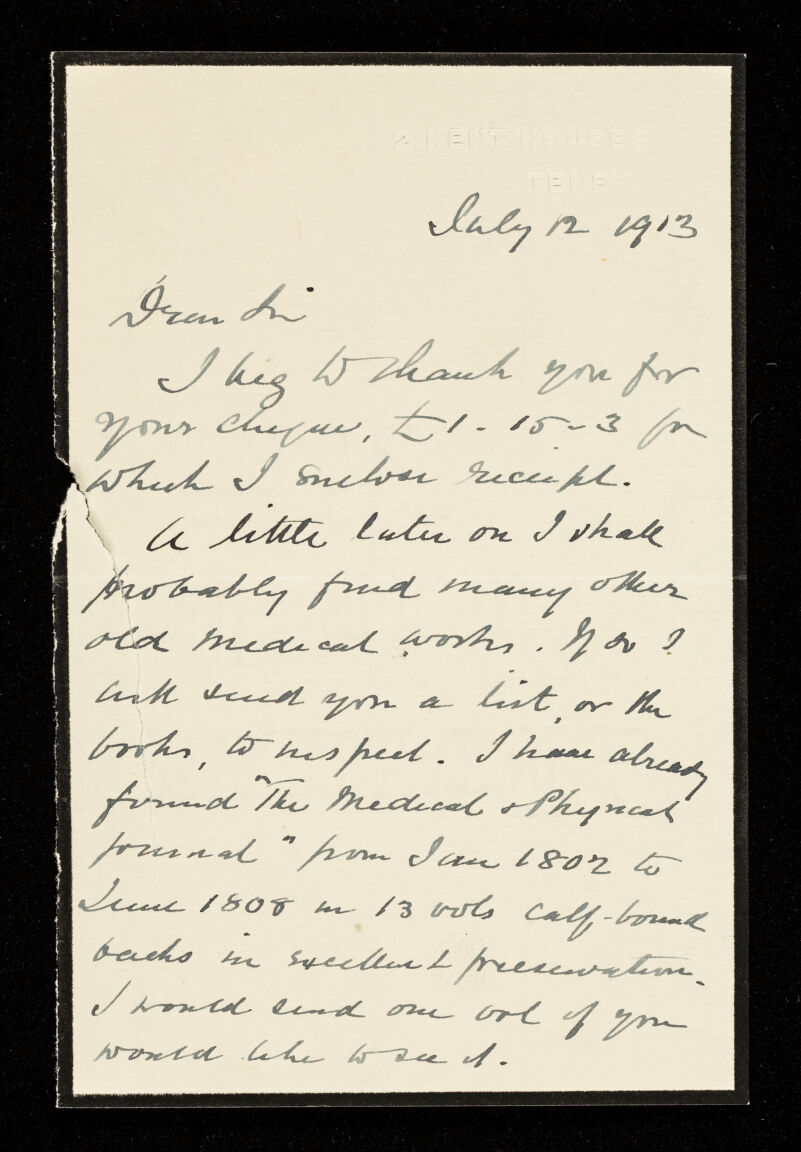 2, KENT HOUSES
TENBY
July 12 1913
Dear Sir
I beg to thank you for
your cheque, £1-15-3 for
which I enclose receipt.
A little later on I shall
probably find many other
old medical works. If so I
will send you a list, or the
books, to inspect. I have already
found "The Medical & Physical
Journal" from Jan 1802 to
June 1808 in 13 vols calf-bound
backs in excellent preservation.
I would send one vol if you
would like to see it.